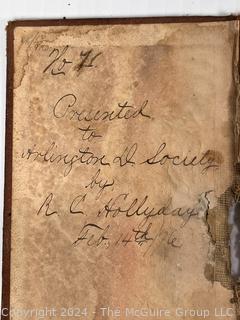 No 71.
Presented
to
Arlington D. Society
by
R C Hollyday
Feb. 14th/76
Copyright 2024 - The Marquire Group LLC